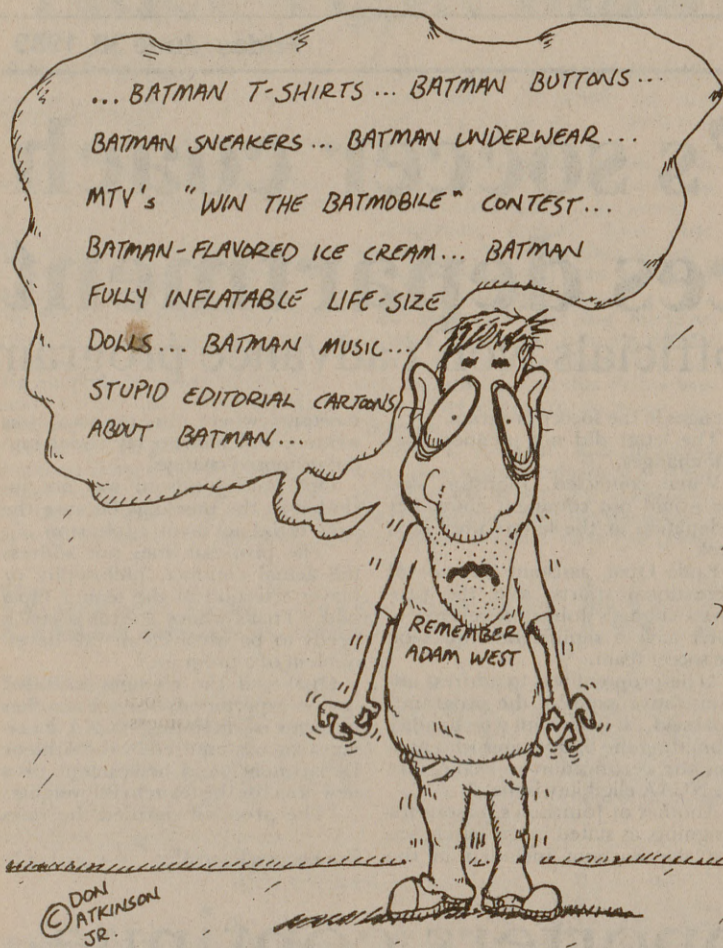 ... BATMAN T-SHIRTS ... BATMAN BUTTONS ...
BATMAN SNEAKERS ... BATMAN UNDERWEAR ...
MTV's "WIN THE BATMOBILE" CONTEST ...
BATMAN-FLAVORED ICE CREAM ... BATMAN
FULLY INFLATABLE LIFE-SIZE
DOLLS ... BATMAN MUSIC ...
STUPID EDITORIAL CARTOONS
ABOUT BATMAN ...
REMEMBER
ADAM WEST
© DON
ATKINSON
JR.